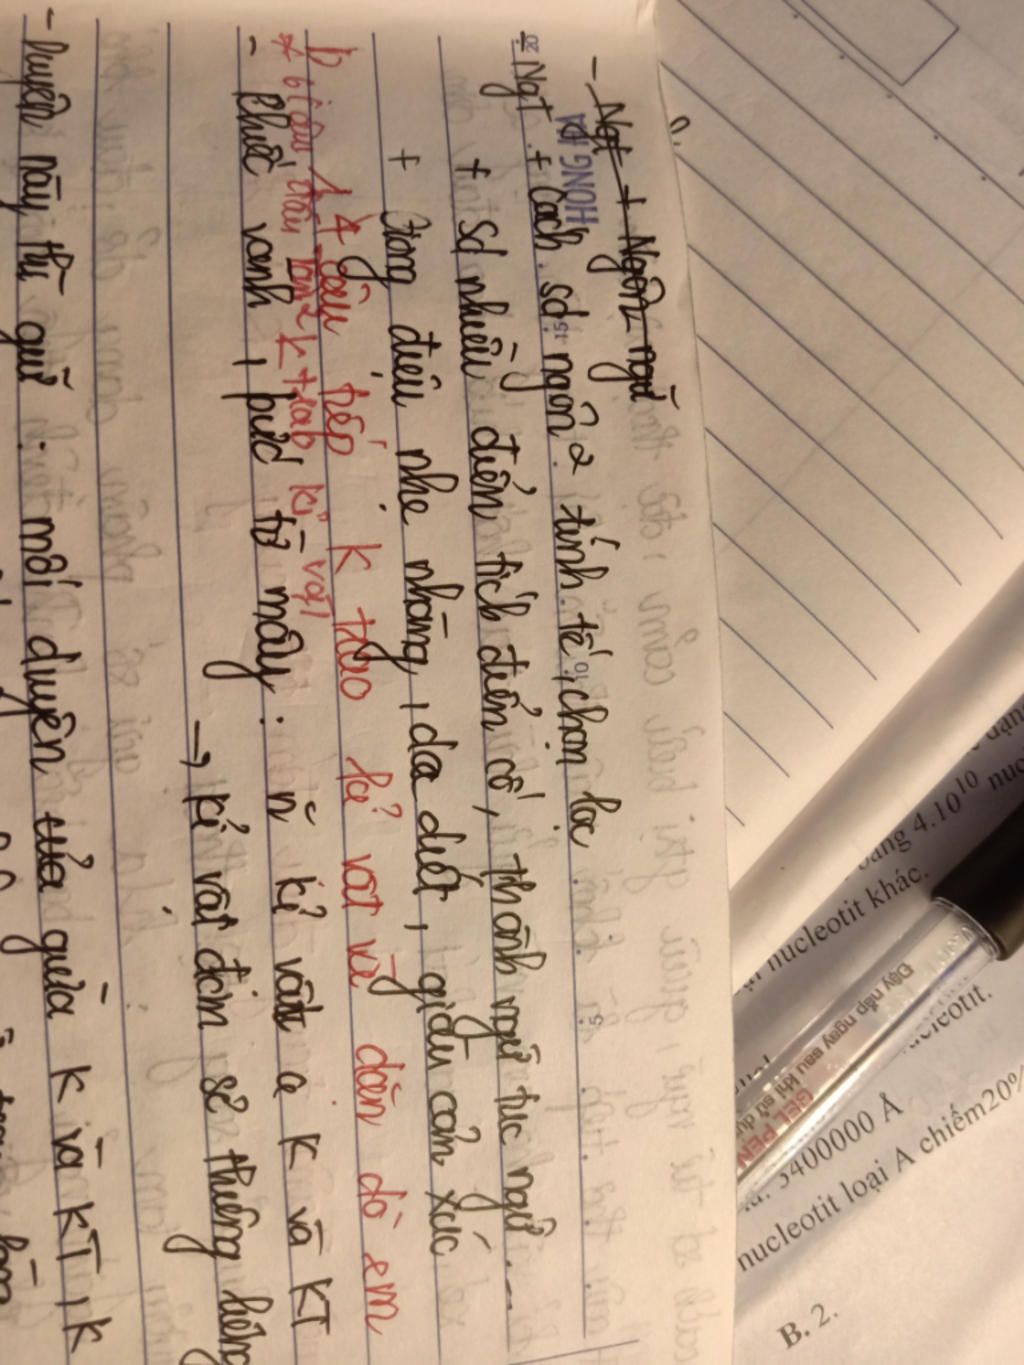 - Ngt + Ngôn ngữ
HỒNG HÀ
Ngt + Cách sd ngôn 2 tinh tế, chọn lọc
+ sd nhiều điển tích điển cố, thành ngữ tục ngữ...
+ Giọng điệu nhẹ nhàng, da diết, giàu cảm xúc
4 câu tiếp K trao kỉ vật và dặn dò em
k trao kỉ vật
- Chiếc vành, bức tờ mây: n~ kỉ vật của K và KT
→ kỉ vật đơn sơ thiêng liêng
- Duyên này thì giữ: mối duyên tình giữa K và KT, K
bằng 4.10^10 nuc
nucleotit khác.
nucleotit.
3400000 Å
nucleotit loại A chiếm 20%
B. 2.
Đậy nắp ngay sau khi sử dụng
GEL PEN